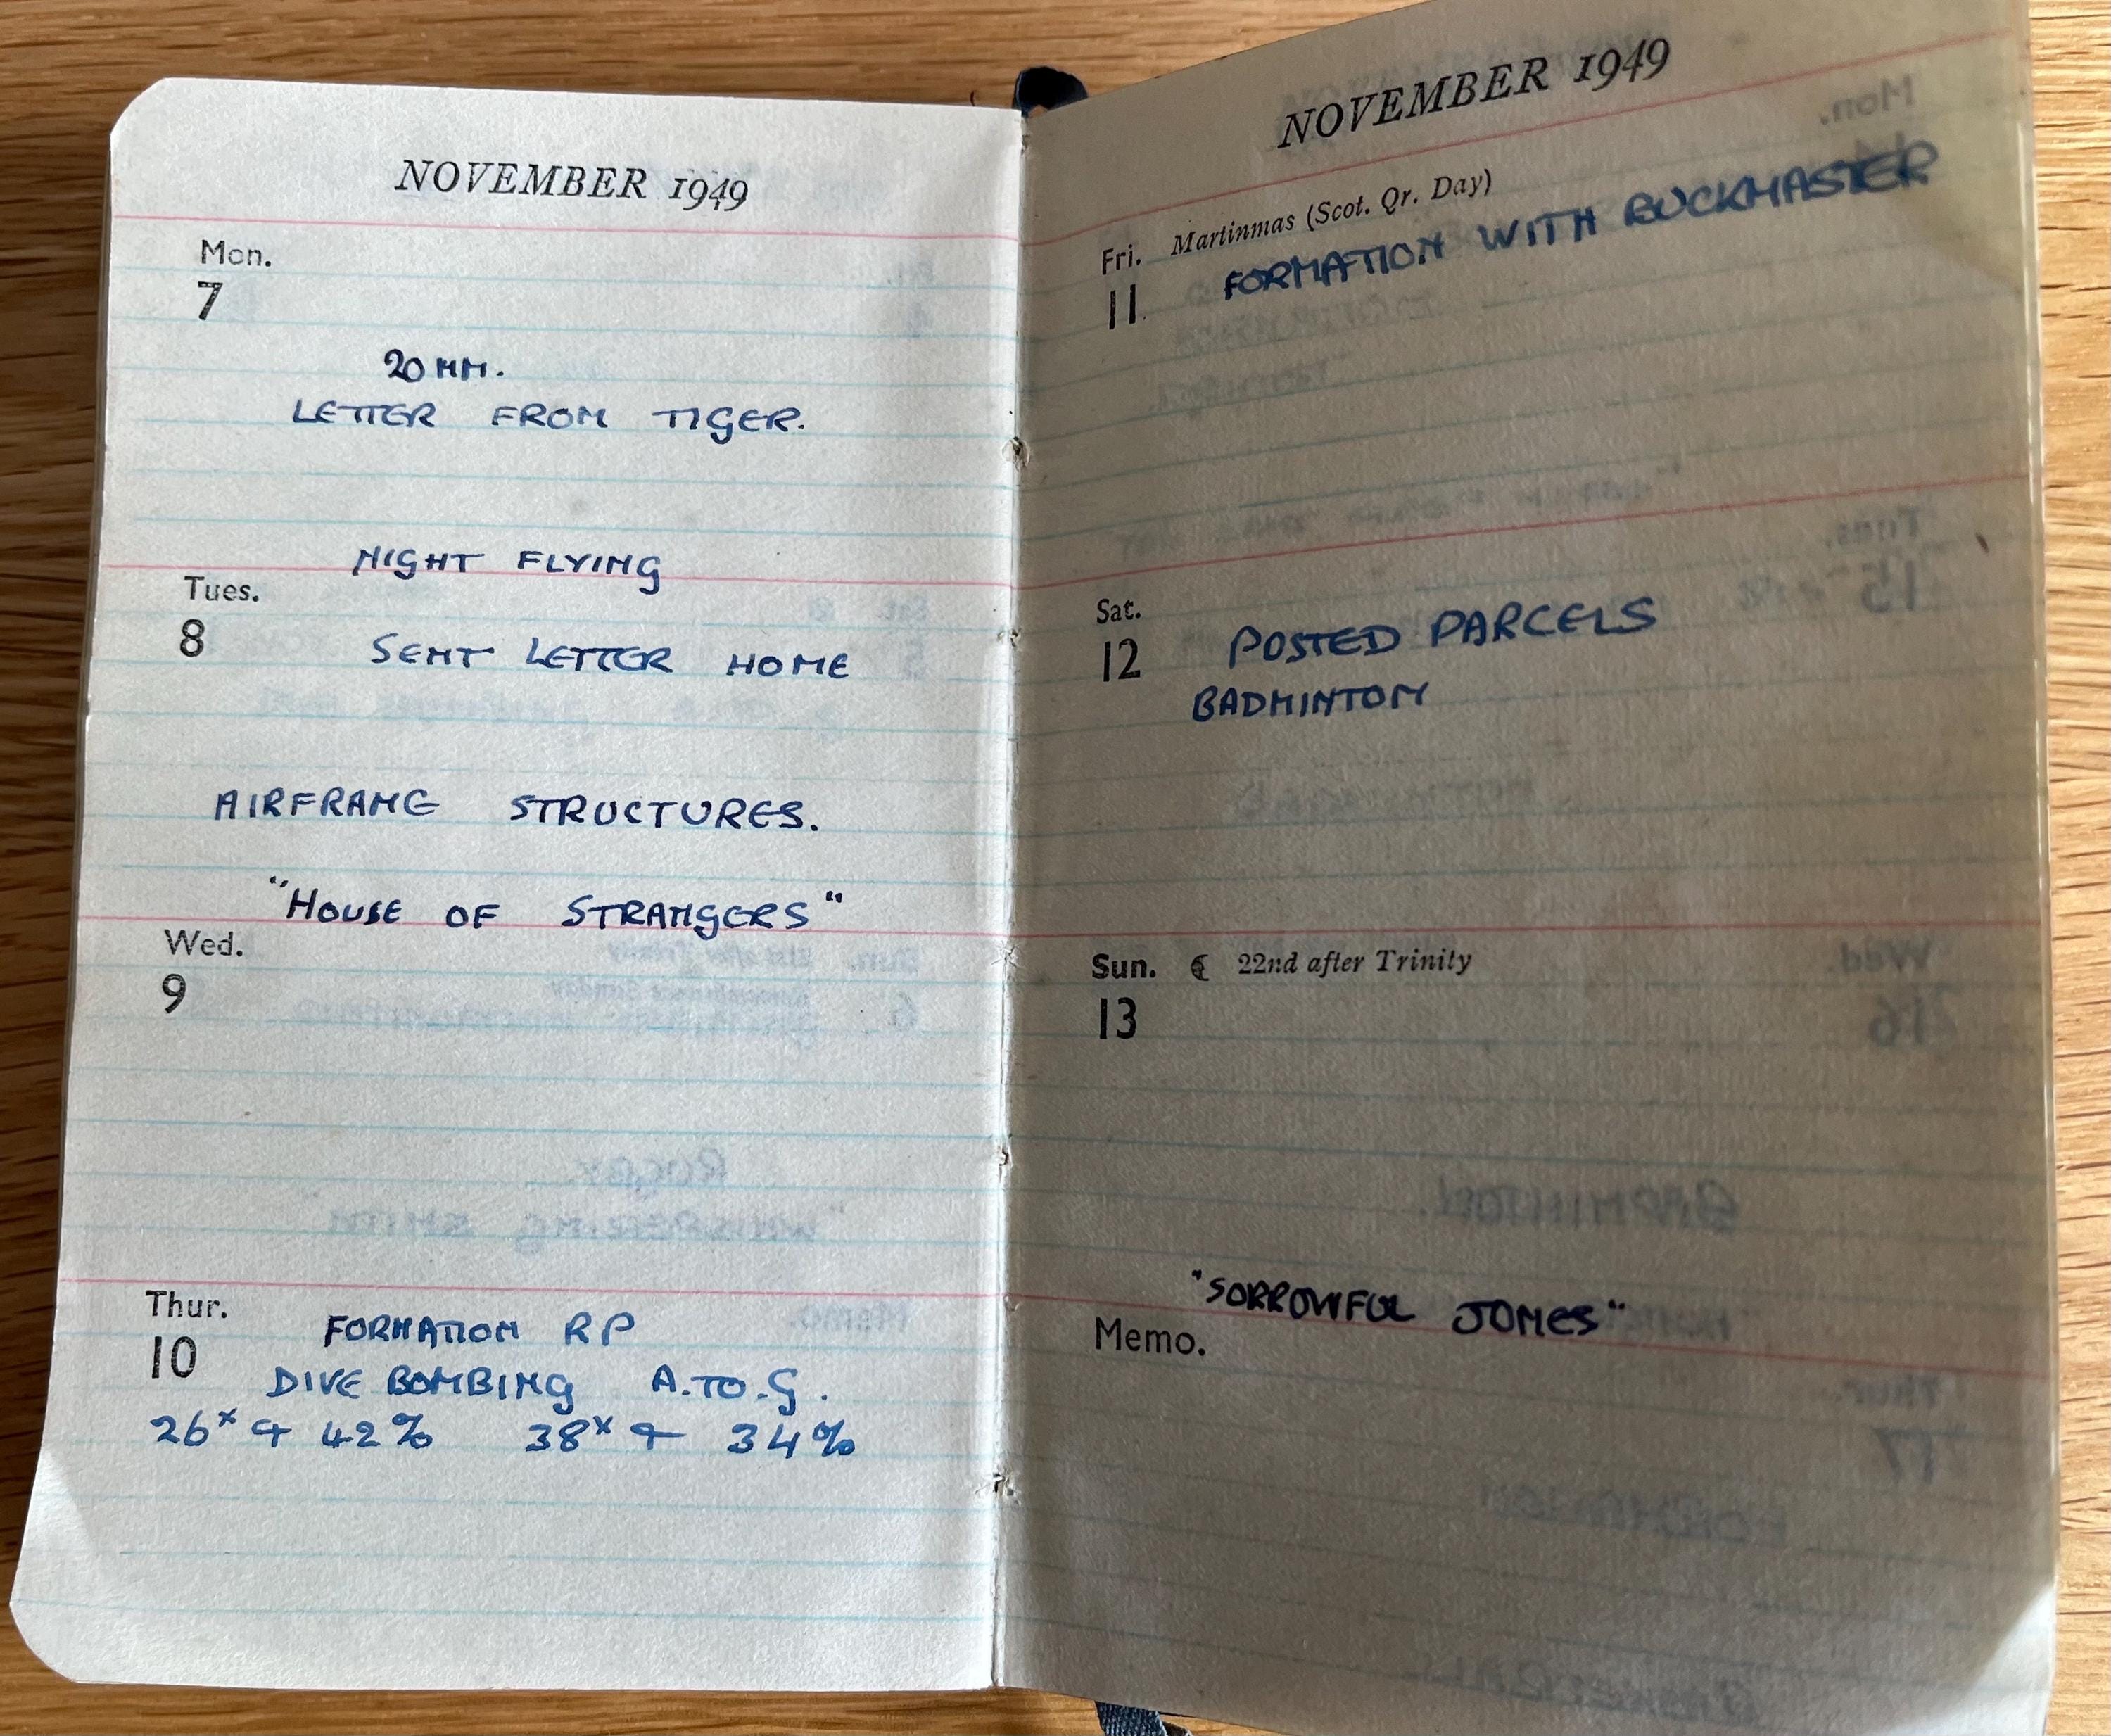 NOVEMBER 1949
Mon.
7
20 MM.
LETTER FROM TIGER.
NIGHT FLYING
Tues.
8
SENT LETTER HOME
AIRFRAME STRUCTURES.
"HOUSE OF STRANGERS"
Wed.
9
Thur.
10
FORMATION RP
DIVE BOMBING A.TO.G.
26x & 42% 38x & 34%
NOVEMBER 1949
Fri. Martinmas (Scot. Qr. Day)
11
FORMATION WITH BUCKMASTER
Sat.
12
POSTED PARCELS
BADMINTON
Sun. ☾ 22nd after Trinity
13
"SORROWFUL JONES"
Memo.